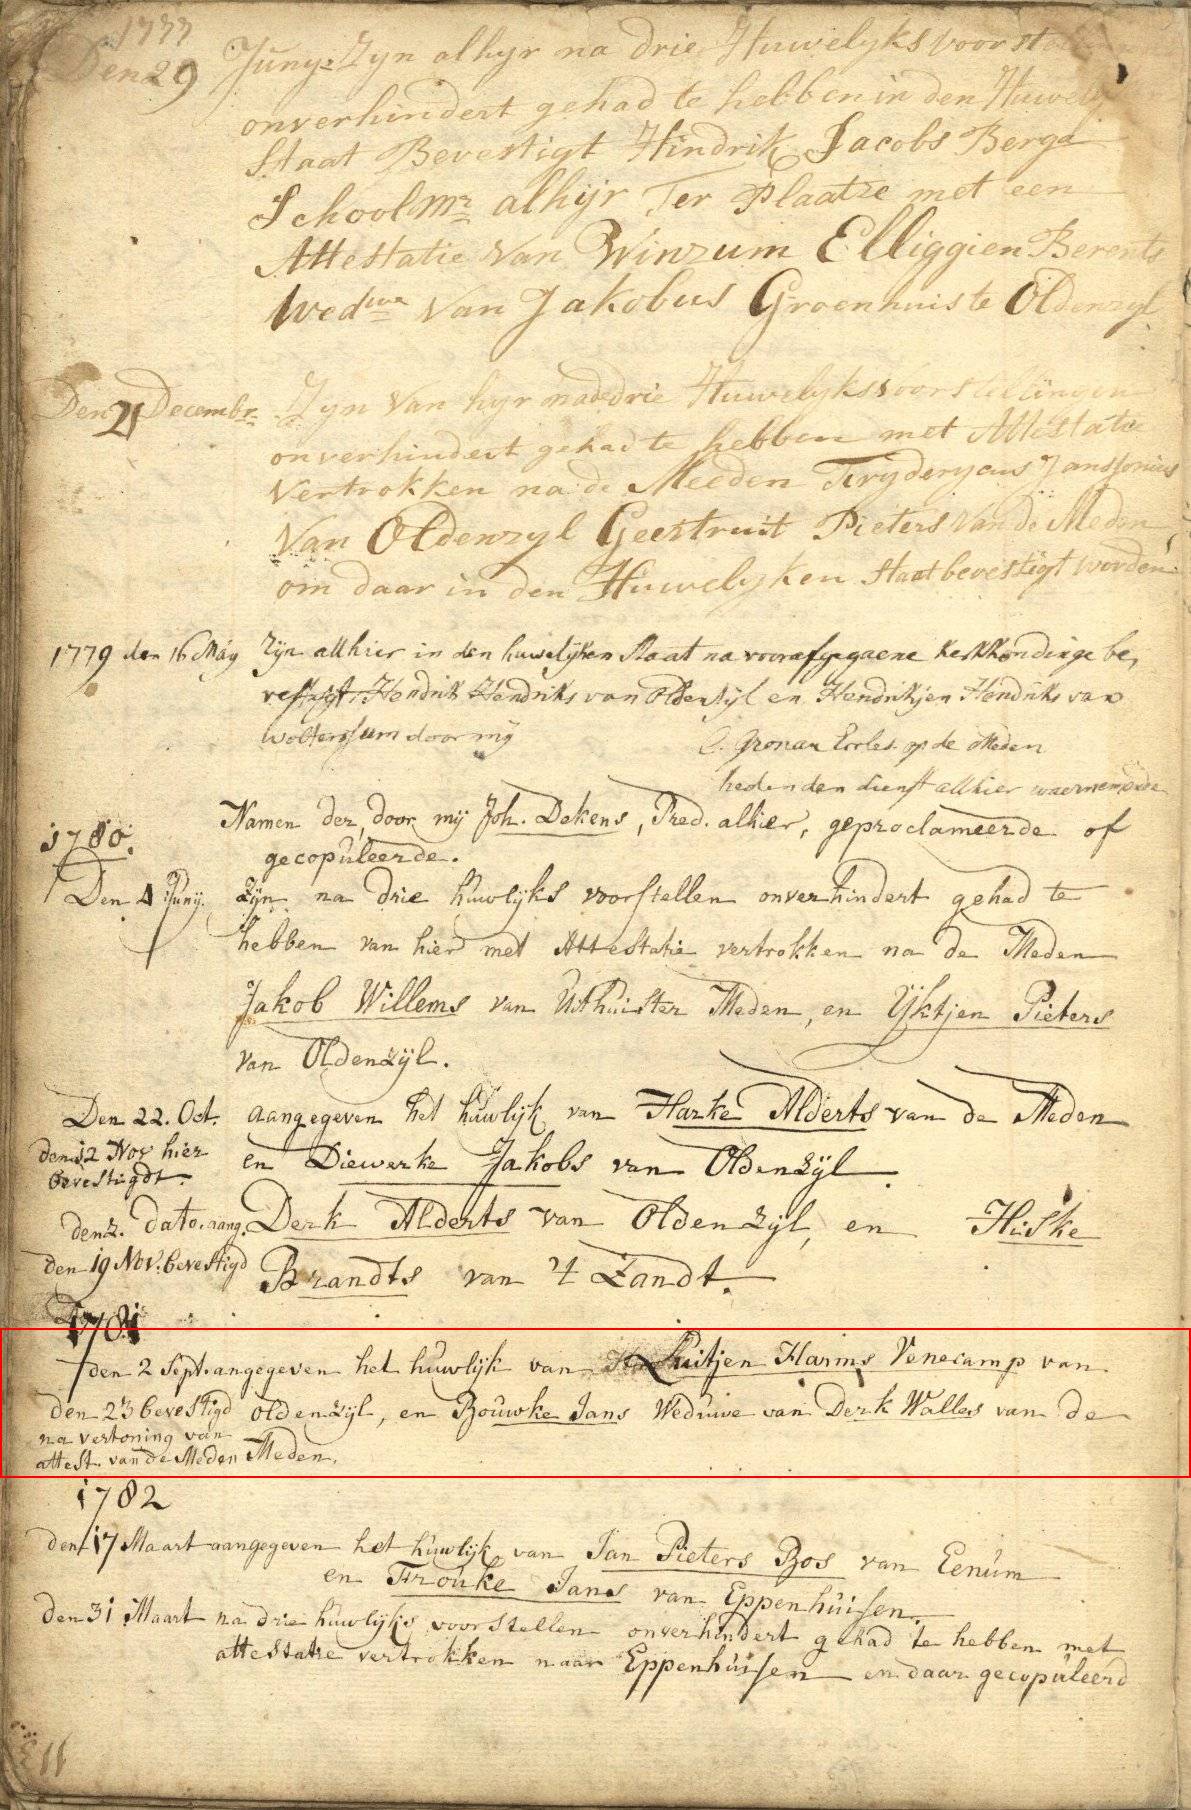 1777
Den 29 Juny. Zyn alhyr na drie Huwelyks voorstel
onverhindert gehad te hebben in den Huwely
Staat Bevestigt Hindrik Jacobs Berga
Schoolmr alhijr Ter Plaatze met een
Attestatie Van Winzum Elliggien Berents
Wedwe Van Jakobus Groenhuis te Oldenzyl
Den 21 Decembr. Zyn Van hyr na de drie Huwelyksvoorstellingen
onverhindert gehad te hebben met Attestatie
Vertrokken na de Meeden Fryderycus Janssonius
Van Oldenzyl Geertruit Pieters Van de Meden
om daar in den Huwelyken Staat bevestigt worden
1779 den 16 May Zijn allhier in den huwelijken Staat na voorafgegaene kerkkondinge be,
vestigt Hendrik Hendriks van Oldersijl en Hendrikjen Hendriks van
woltersum door mij
Gronau Eccles. op de Meden
heden den dienst allhier waernemende
Namen der, door mij Joh. Dekens, Pred. alhier, geproclameerde of
1780.
gecopuleerde.
Den 4 Junij. Zijn na drie huwlijks voorstellen onverhindert gehad te
hebben van hier met Attestatie vertrokken na de Meden
Jakob Willems van Uithuister Meden, en Ijktjen Pieters
van Oldenzijl.
Den 22. Oct. aangegeven het huwlijk van Harke Alderts van de Meden
den 12 Nov hier
bevestigdt.
en Diewerke Jakobs van Oldenzijl.
den 2. dato. aang. Derk Alderts van Oldenzijl, en Huske
den 19 Nov. bevestigd Brandts van 't Zandt.
1781
den 2 Sept. angegeven het huwlijk van Luitjen Harms Venecamp van
den 23 bevestigd Oldenzijl, en Bouwke Jans Weduwe van Derk Walles van de
na vertoning van
attest. van de Meden Meden.
1782
den 17 Maart aangegeven het huwlijk van Jan Pieters Bos van Eenum
en Frouke Jans van Eppenhuisen.
den 31 Maart na drie huwlijks voorstellen onverhindert gehad te hebben met
attestatie vertrokken naar Eppenhuisen en daar gecopuleerd